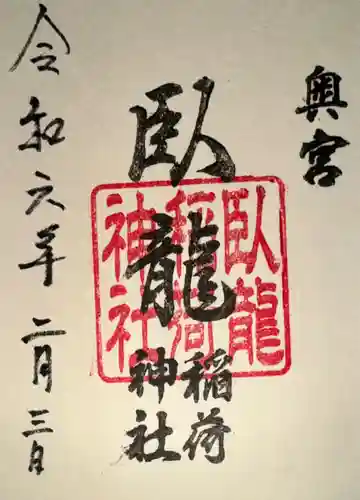 奥宮
臥龍
稲荷
神社
臥龍
稲荷
神社
令和六年二月三日